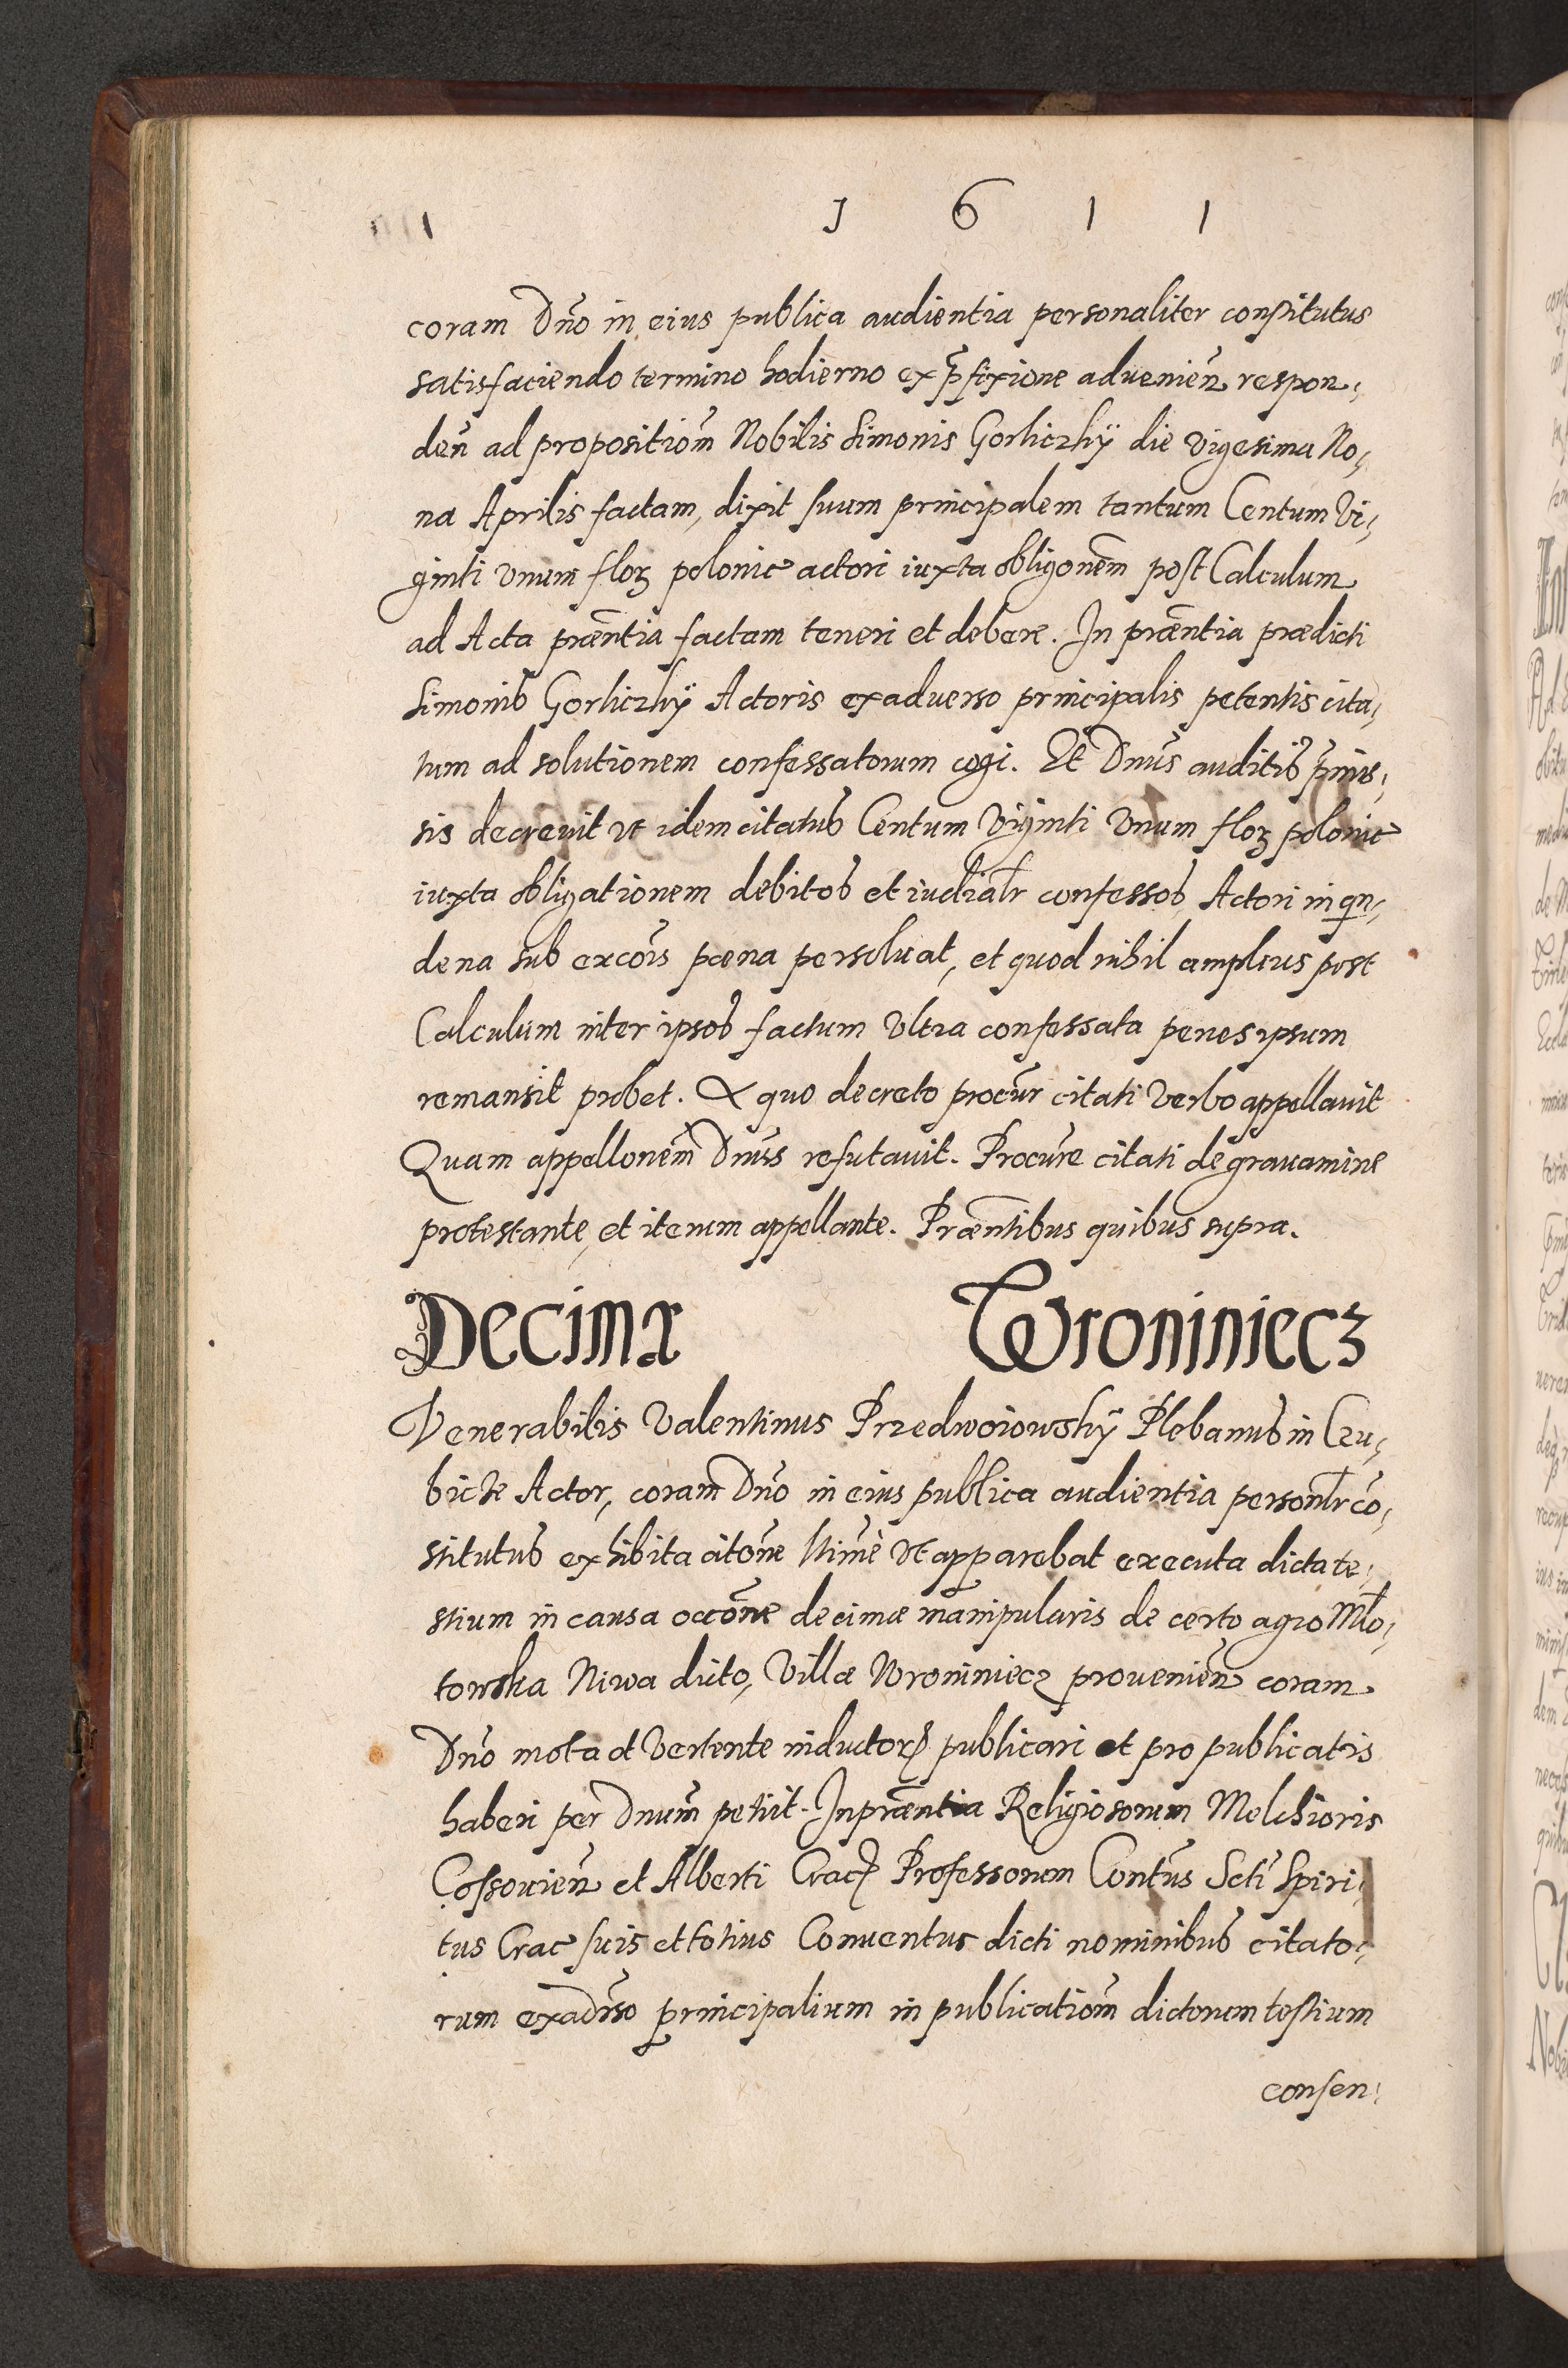 1 6 1 1
coram Dño in eius publica audientia personaliter constitutus
satisfaciendo termino hodierno ex p̃fixione aduenieñ respon,
deñ ad propositiom̃ Nobilis Simonis Gorliczkÿ die vigesima No,
na Aprilis factam, dixit suum principalem tantum Centum Vi,
ginti vnum floꝝ polonic actori iuxta obligonem̃ post Calculum
ad Acta præntia factam teneri et debere. In præntia prædicti
Simonis Gorliczkÿ Actoris exaduerso principalis petentis cita,
tum ad solutionem confessatorum cogi. Et Dnus̃ auditis p̃mis,
sis decreuit vt idem citatus Centum Viginti Vnum floꝝ polonic
iuxta obligationem debitos et iudialr̃ confessos Actori in qn̄,
dena sub excoĩs pæna persoluat, et quod nihil amplius post
Calculum inter ipsos factum Vltra confessata penes ipsum
remansit probet. A quo decreto procur̃ citati Verbo appellauit
Quam appellonem̃ Dnus̃ refutauit. Procur̃e citati de grauamine
protestante, et iterum appellante. Præntibus quibus supra.
Decimæ Wroniniecz
Venerabilis Valentinus Przedwoiowskÿ Plebanus in Czu,
bicze Actor, coram Dño in eius publica audientia personlr̃ co,
stitutus exhibita citoñe ltim̃e vt apparebat executa dicta te,
stium in causa occoñe decimæ manipularis de certo agro Mło,
towska Niwa dicto, Villæ Wroniniecz prouenieñ coram
Dño mota et Vertente inductorꝝ publicari et pro publicatis
haberi per Dnum̃ petiit. In præntia Religiosorum Melchioris
Cossouieñ et Alberti Crac Professorum Contus̃ Scti Spiri,
tus Crac suis et totius Conuentus dicti nominibus citato,
rum exadr̃so principalium in publicatiom̃ dictorum testium
consen,